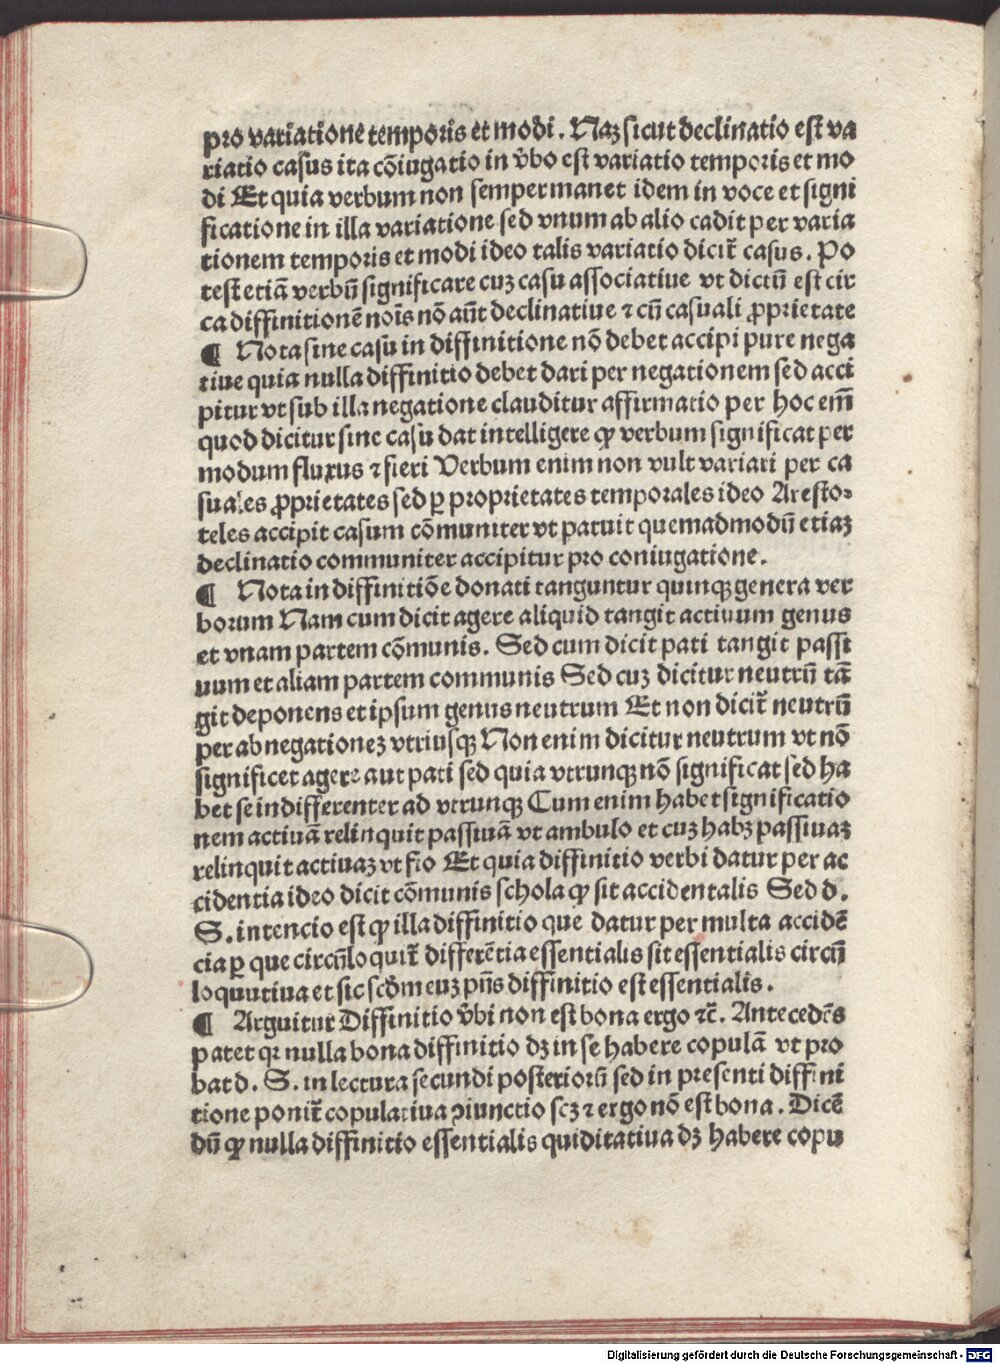 pro variatione temporis et modi. Naꝫ sicut declinatio est va
riatio casus ita cōiugatio in v̄bo est variatio temporis et mo
di Et quia verbum non semper manet idem in voce et signi
ficatione in illa variatione sed vnum ab alio cadit per varia
tionem temporis et modi ideo talis variatio dicit̄ casus. Po
test etiā verbū significare cuꝫ casu associatiue vt dictū est cir
ca diffinitionē nois̄ nō aūt declinatiue ⁊ cū casuali ꝓprietate
¶ Nota sine casu in diffinitione nō debet accipi pure nega
tiue quia nulla diffinitio debet dari per negationem sed acci
pitur vt sub illa negatione clauditur affirmatio per hoc em̄
quod dicitur sine casu dat intelligere ꝙ verbum significat per
modum fluxus ⁊ fieri Verbum enim non vult variari per ca
suales ꝓprietates sed ꝑ proprietates temporales ideo Aresto-
teles accipit casum cōmuniter vt patuit quemadmodū etiaꝫ
declinatio communiter accipitur pro coniugatione.
¶ Nota in diffinitiōe donati tanguntur quinqꝫ genera ver
borum Nam cum dicit agere aliquid tangit actiuum genus
et vnam partem cōmunis. Sed cum dicit pati tangit passi
uum et aliam partem communis Sed cuꝫ dicitur neutrū tā
git deponens et ipsum genus neutrum Et non dicit̄ neutrū
per abnegationeꝫ vtriusqꝫ Non enim dicitur neutrum vt nō
significet agere aut pati sed quia vtrunqꝫ nō significat sed ha
bet se indifferenter ad vtrunqꝫ Cum enim habet significatio
nem actiuā relinquit passiuā vt ambulo et cuꝫ habꝫ passiuaꝫ
relinquit actiuaꝫ vt fio Et quia diffinitio verbi datur per ac
cidentia ideo dicit cōmunis schola ꝙ sit accidentalis Sed d.
S. intencio est ꝙ illa diffinitio que datur per multa accidē
cia ꝑ que circūloquit̄ differētia essentialis sit essentialis circū
loquutiua et sic scd̄m euꝫ pn̄s diffinitio est essentialis.
¶ Arguitur Diffinitio v̄bi non est bona ergo ⁊c̄. Antecedēs
patet qꝛ nulla bona diffinitio dꝫ in se habere copulā vt pro
bat d. S. in lectura secundi posteriorū sed in presenti diffini
tione ponit̄ copulatiua ꝯiunctio scꝫ ⁊ ergo nō est bona. Dicē
dū ꝙ nulla diffinitio essentialis quiditatiua dꝫ habere copu
Digitalisierung gefördert durch die Deutsche Forschungsgemeinschaft - DFG